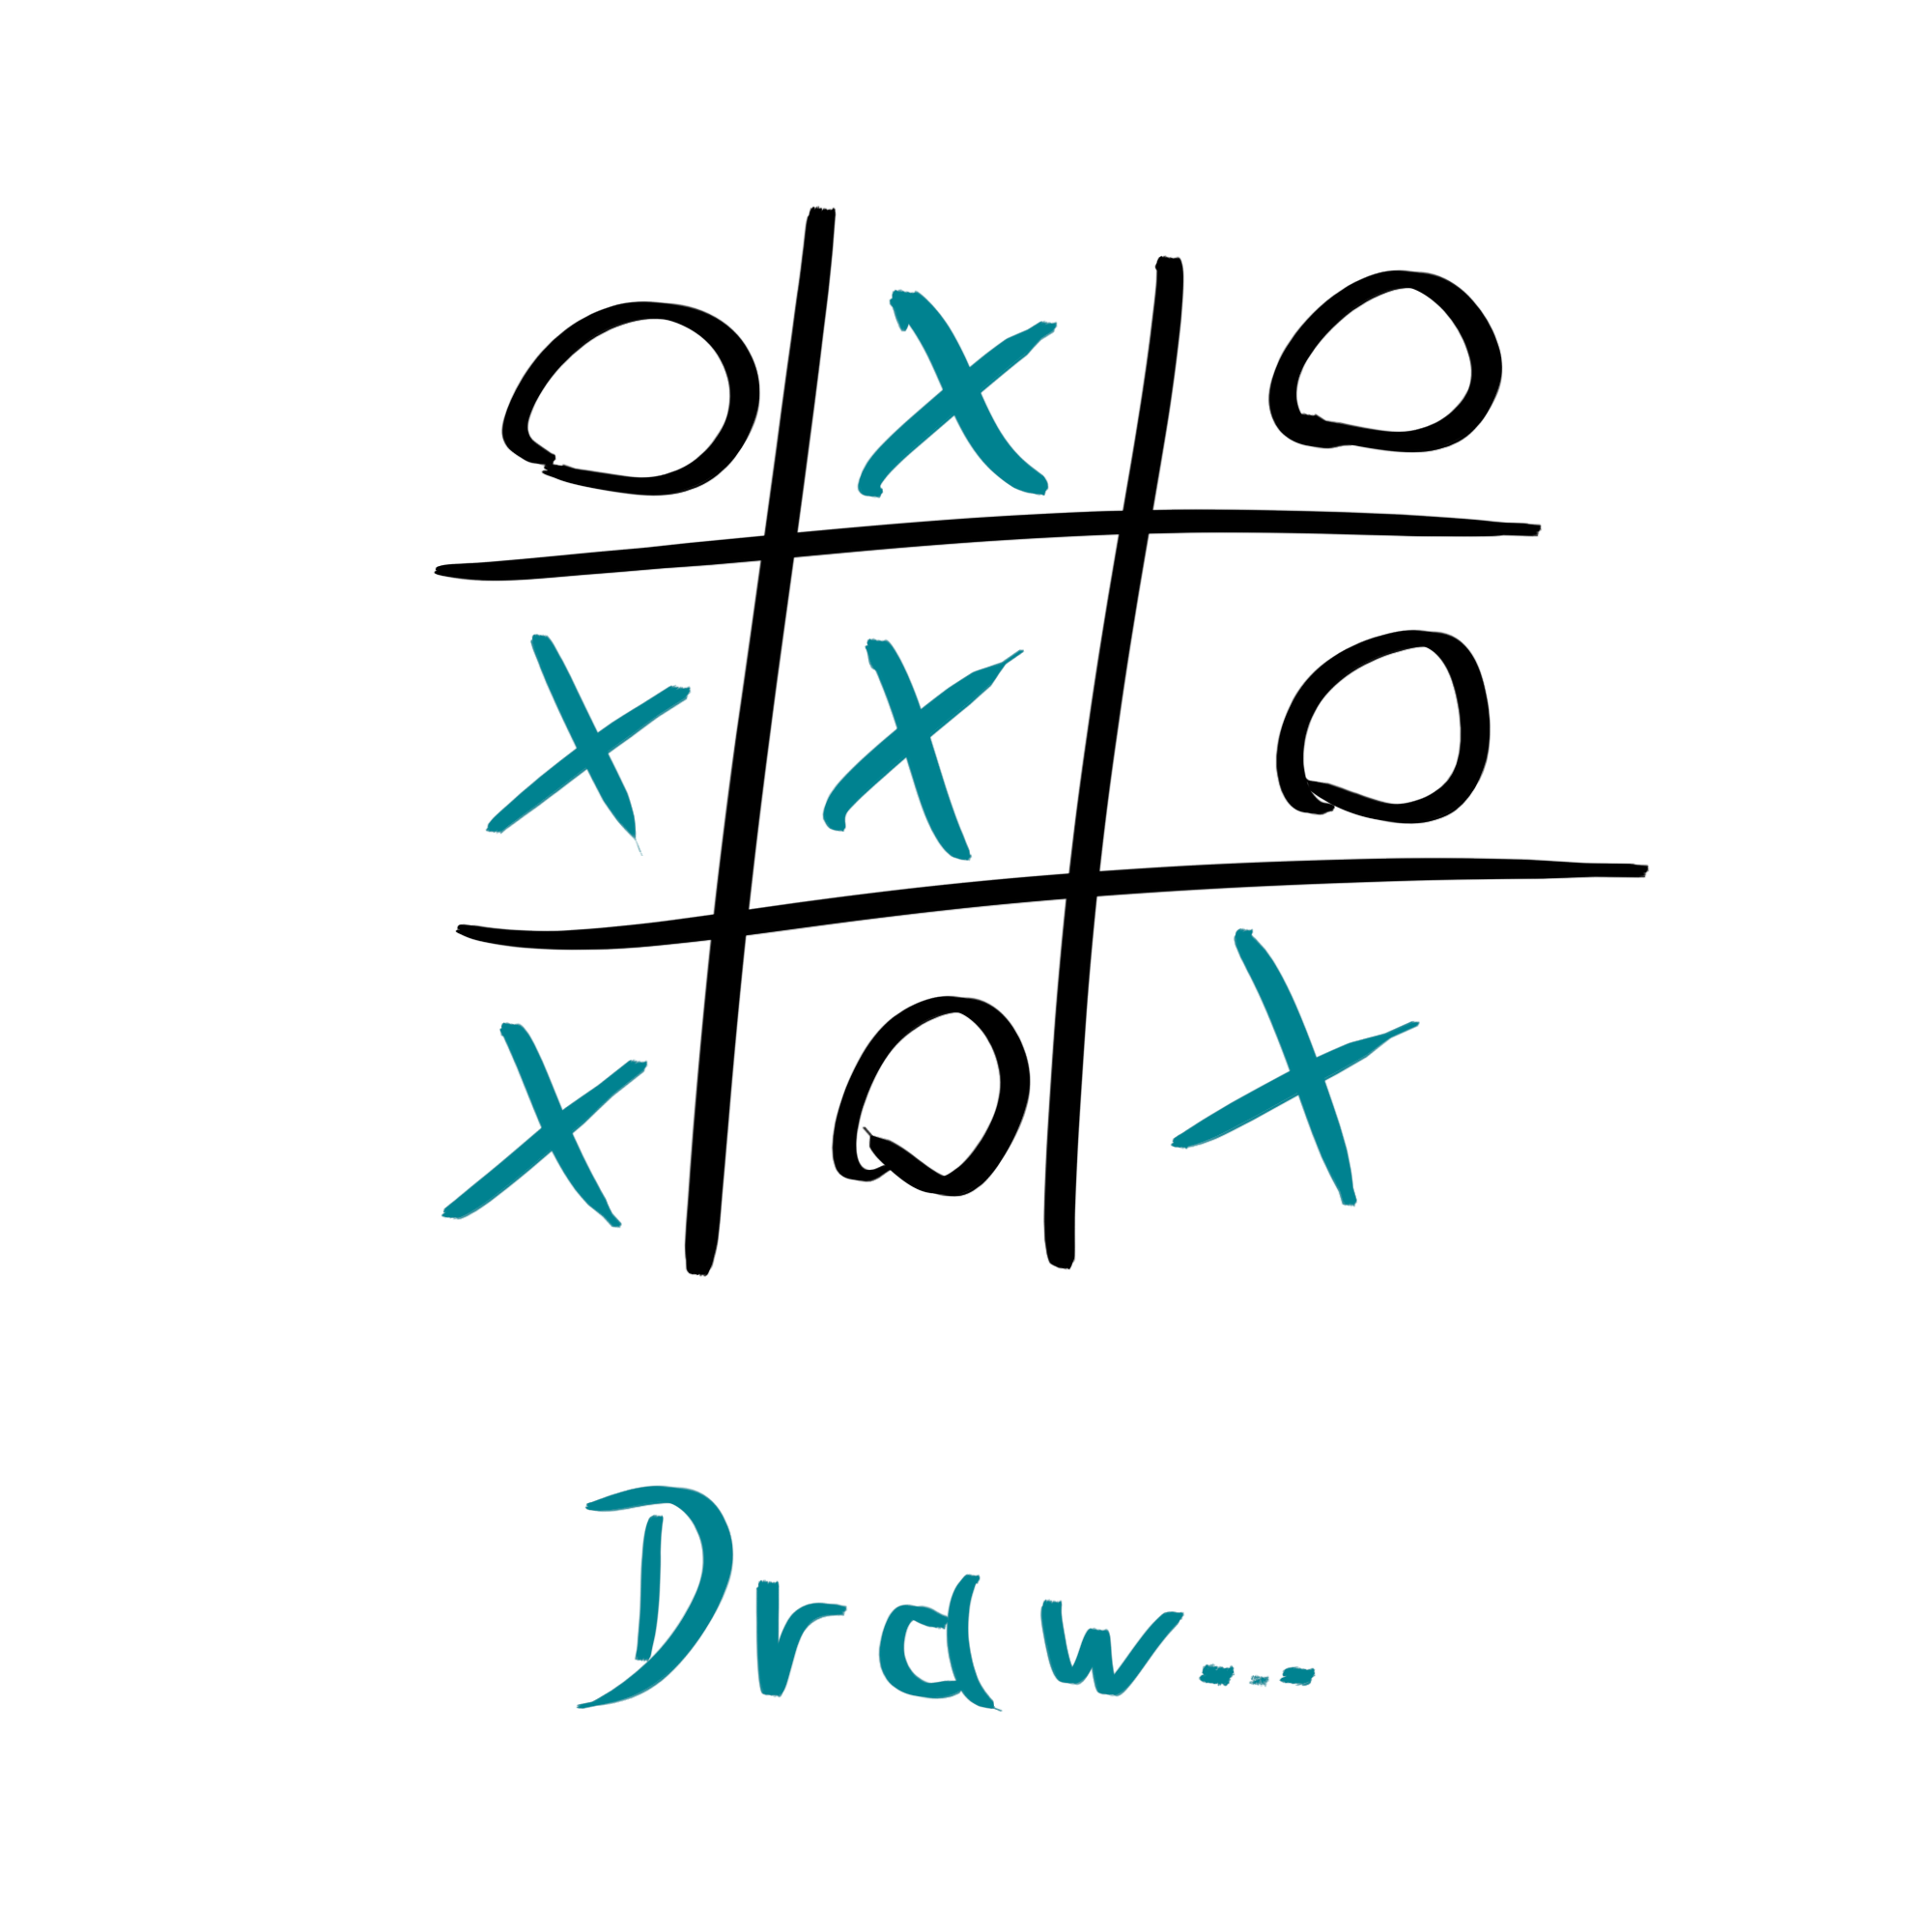 O X O
X X O
X O X
Draw...